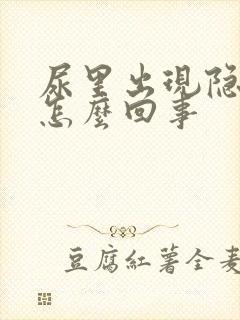 尿里出現隐
怎麼回事
豆腐紅薯全麦